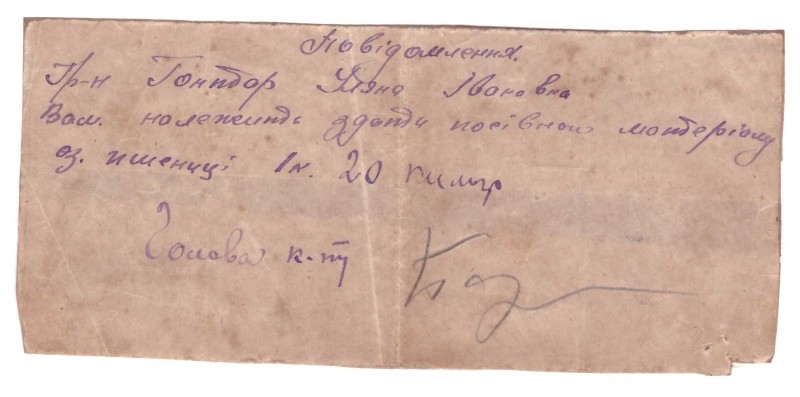 Повідомлення.
Гр-н Гонтдар Уляна Івановна
Вам. належить здати посівного матеріалу
оз. пшениці 1ц. 20 килогр
Голова к-ту